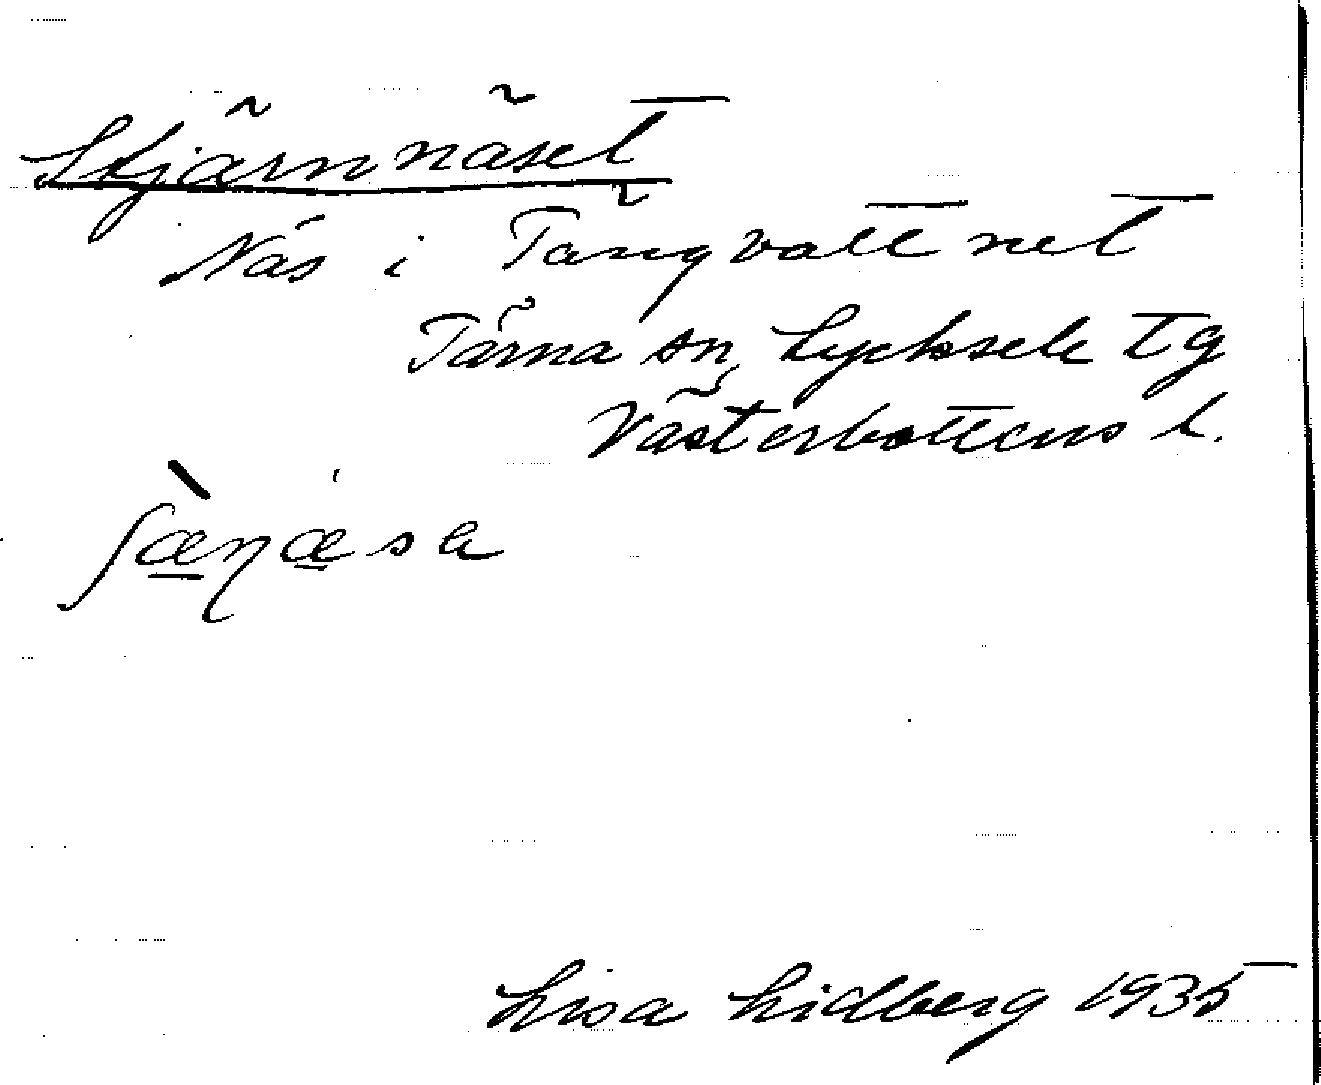 Stjärnnäset
Näs i Tängvattnet
Tärna sn, Lycksele tg
Västerbottens l.
ʃæ̠̀ɳæ̠sa
Lisa Lidberg 1935